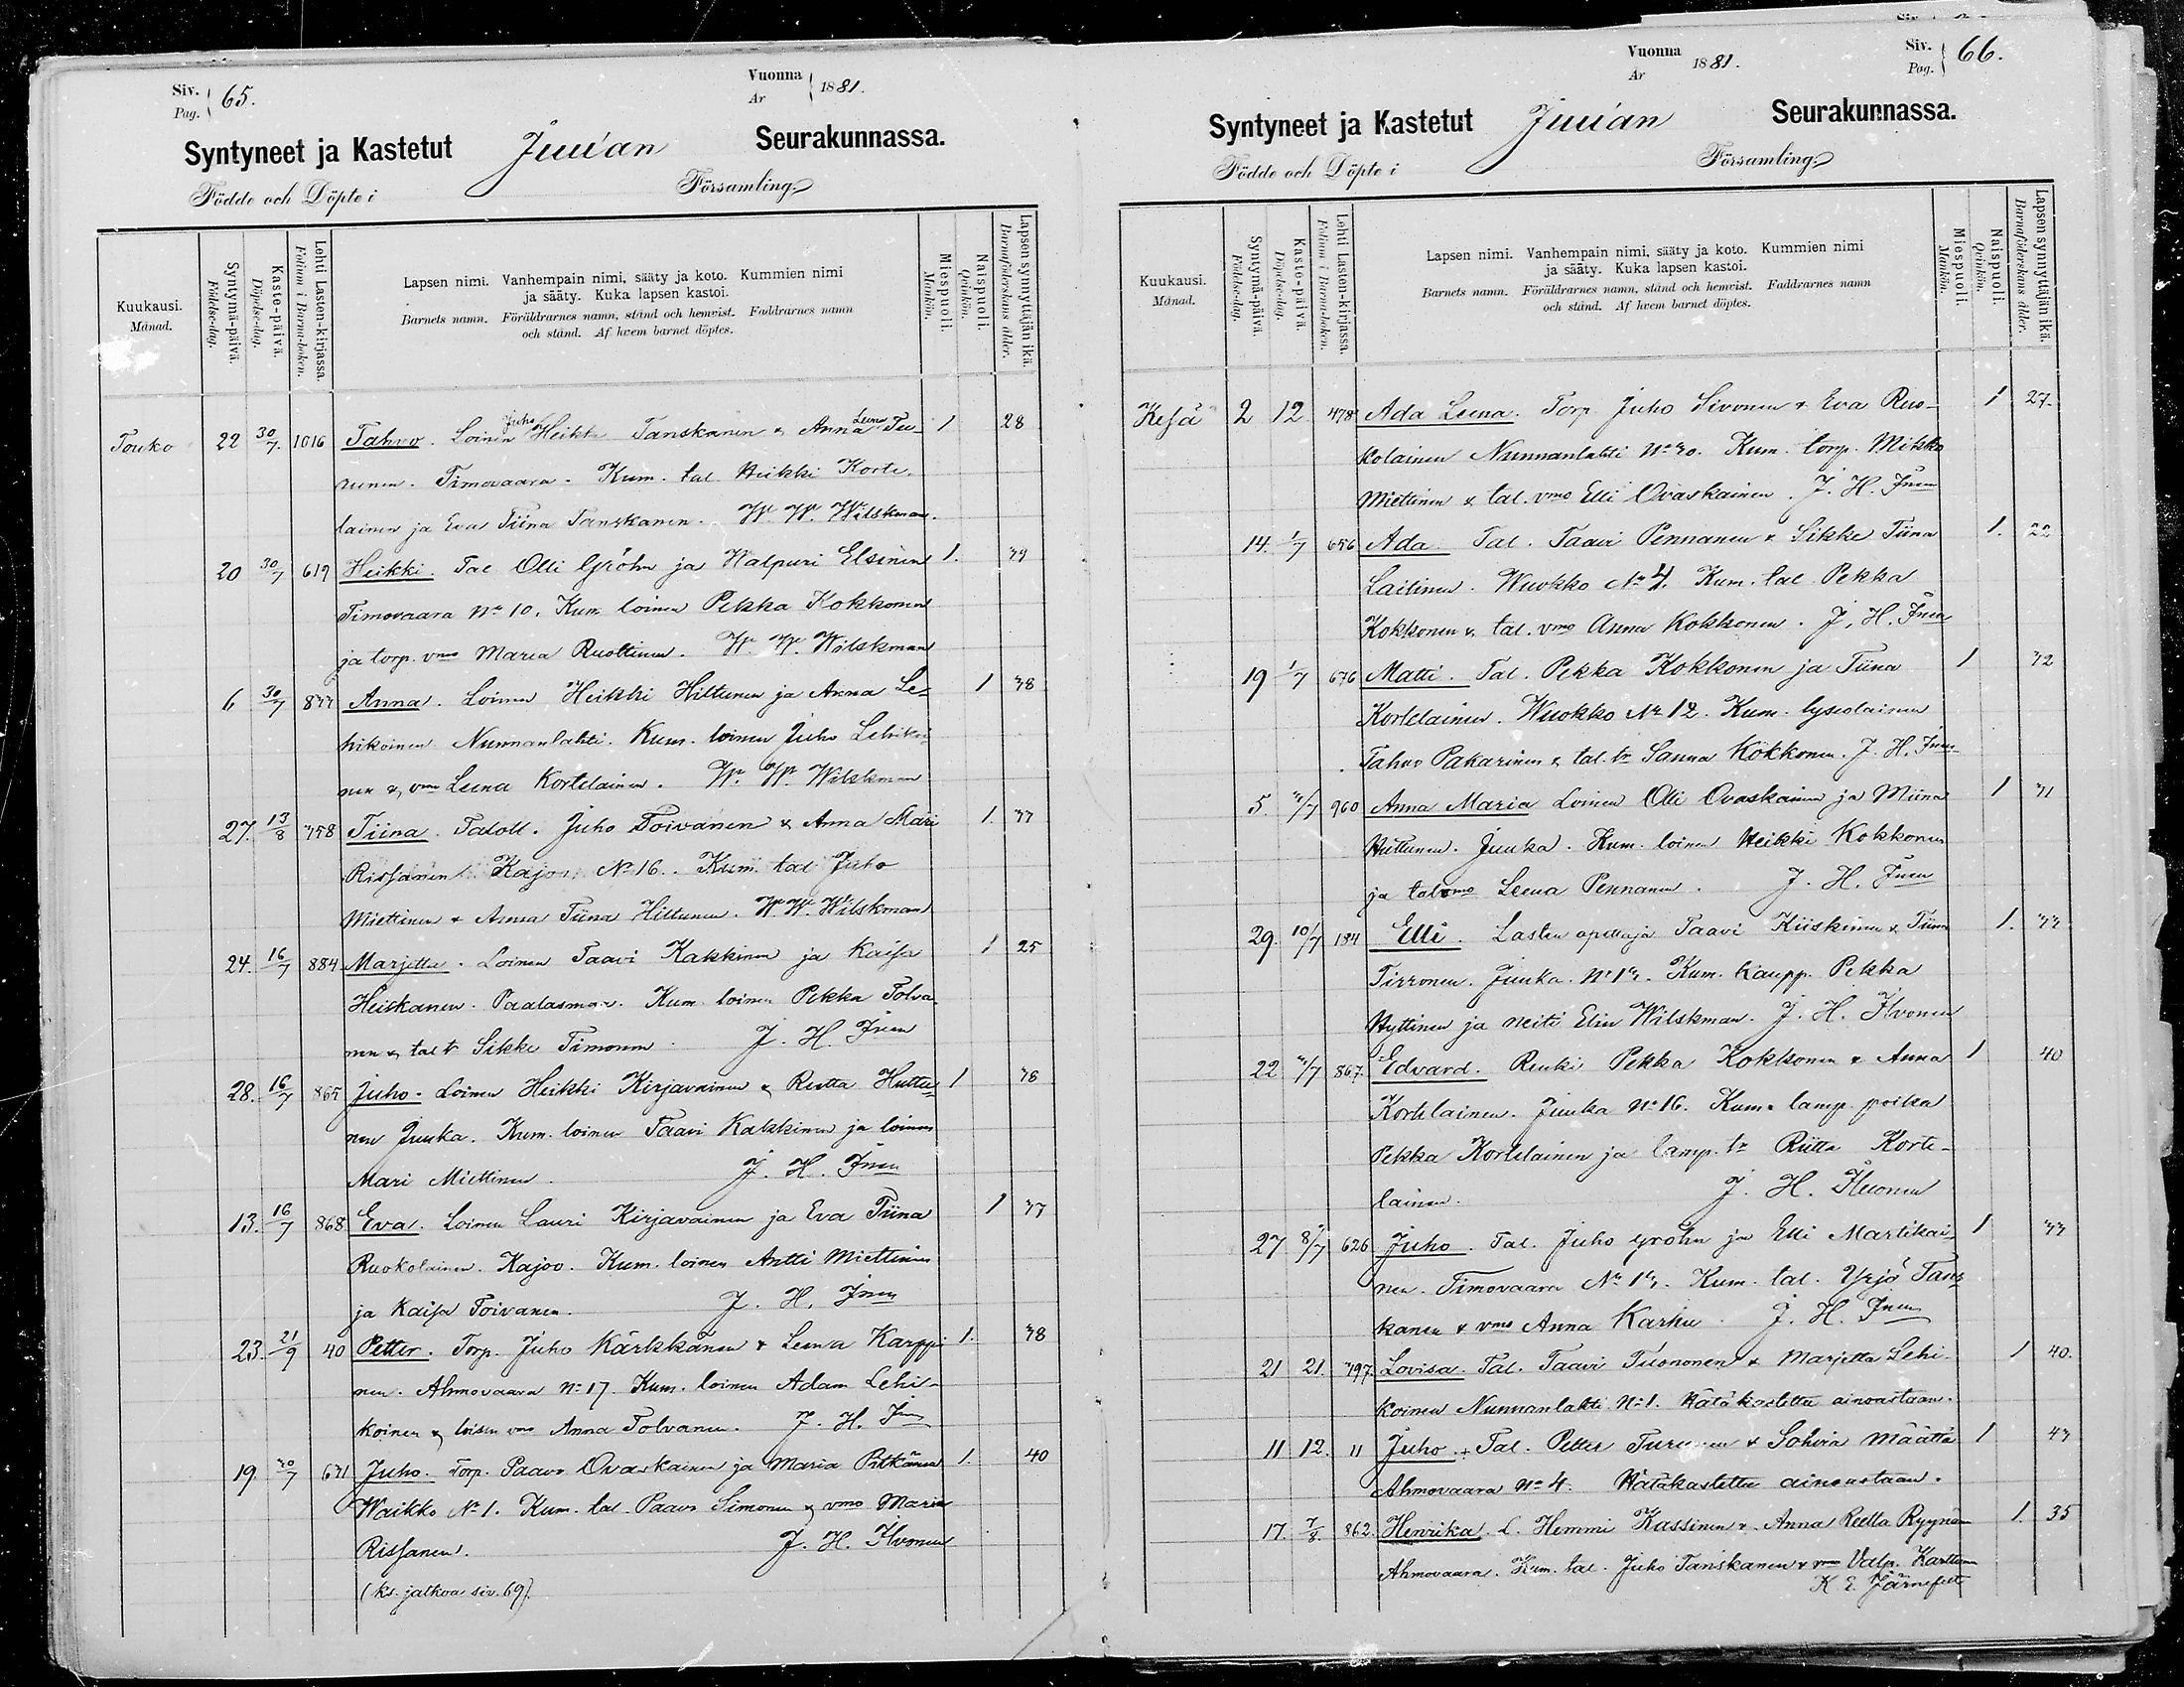 Siv. Pag. 65.
Vuonna Ar 1881.
Syntyneet ja Kastetut Juuan Seurakunnassa.
Födde och Döpte i Församling.
Kuukausi. Månad.
Syntymä-päivä. Födelse-dag.
Kasto-päivä. Döpelse-dag.
Lehti Lasten-kirjassa. Folium i Barna-boken.
Lapsen nimi. Vanhempain nimi, sääty ja koto. Kummien nimi
ja sääty. Kuka lapsen kastoi.
Barnets namn. Föräldrarnes namn, stånd och hemvist. Faddrarnes namn
och stånd. Af hvem barnet döptes.
Miespuoli. Mankön.
Naispuoli. Qvinkön.
Lapsen synnyttäjän ikä. Barnaföderskans ålder.
Touko 22 30/7. 1016 Tahvo. Loinen Juho Heikk Tanskanen & Anna Leena Tu- 1 28
runen. Timovaara. Kum. tal. Heikki Korte-
lainen ja Eva Tiina Tanskanen. W. W. Wilskman.
20 30/7 619 Heikki. Tal Olli Gröhn ja Walpuri Elsinen 1. 39
Timovaara No 10. Kum loinen Pekka Kokkonen
ja torp. vmo Maria Ruottinen. W. W. Wilskman
6 30/7 833 Anna. Loinen Heikki Hiltunen ja Anna Le- 1 38
hikoinen Nunnanlahti. Kum. loinen Juho Lehikoi-
nen &, vmo Leena Kortelainen. W. W. Wilskman
27. 13/8 358 Tiina. Taloll. Juho Toivanen & Anna Mari 1. 33
Rissanen Kajoo No 16. Kum. tal Juho
Miettinen & Anna Tiina Hiltunen. W. W. Wilskman
24. 16/7 884 Marjetta. Loinen Taavi Kakkinen ja Kaisa 1 25
Heiskanen. Paalasmaa. Kum. loinen Pekka Tolva-
nen & tal tr Sikke Timonen. J. H. Inen
28. 16/7 865 Juho. Loinen Heikki Kirjavainen & Reetta Huttu- 1 38
nen Juuka. Kum. loinen Taavi Kakkinen ja loinen
Mari Miettinen. J. H. Inen
13. 16/7 868 Eva. Loinen Lauri Kirjavainen ja Eva Tiina 1 33
Ruokolainen. Kajoo. Kum. loinen Antti Miettinen
ja Kaisa Toivanen. J. H. Inen
23. 21/9 40 Petter. Torp. Juho Kärkkänen & Leena Karppi- 1. 38
nen. Ahmovaara No 17. Kum. loinen Adam Lehi-
koinen & loisen vmo Anna Tolvanen. J. H. Inen
19. 30/7 631 Juho. Torp. Paavo Ovaskainen ja Maria Pitkänen 1. 40
Waikko No 1. Kum. tal. Paavo Simonen & vmo Maria
Rissanen. J. H. Ilvonen
(ks. jatkoa siv. 69).
Siv. Pag. 66.
Vuonna Ar 1881.
Syntyneet ja Kastetut Juuan Seurakunnassa.
Födde och Döpte i Församling.
Kuukausi. Månad.
Syntymä-päivä. Födelse-dag.
Kasto-päivä. Döpelse-dag.
Lehti Lasten-kirjassa. Folium i Barna-boken.
Lapsen nimi. Vanhempain nimi, sääty ja koto. Kummien nimi
ja sääty. Kuka lapsen kastoi.
Barnets namn. Föräldrarnes namn, stånd och hemvist. Faddrarnes namn
och stånd. Af hvem barnet döptes.
Miespuoli. Mankön.
Naispuoli. Qvinkön.
Lapsen synnyttäjän ikä. Barnaföderskans ålder.
Kesä 2 12 478 Ada Leena. Torp. Juho Sivonen & Eva Ruo- 1 27.
kolainen Nunnanlahti No 30. Kum. torp. Mikko
Miettinen & tal. vmo Elli Ovaskainen. J. H. Inen
14. 1/7 656 Ada. Tal. Taavi Pennanen & Sikke Tiina 1. 22
Laitinen. Wuokko No 4. Kum. tal. Pekka
Kokkonen & tal. vmo Anna Kokkonen. J. H. Inen
19 1/7 676 Matti. Tal. Pekka Kokkonen ja Tiina 1 32
Kortelainen. Wuokko No 12. Kum. lyseolainen
Tahvo Pakarinen & tal. tr Sanna Kokkonen. J. H. Inen
5. 3/7 960 Anna Maria Loinen Olli Ovaskainen ja Miina 1 31
Huttunen. Juuka. Kum. loinen Heikki Kokkonen
ja tal vmo Leena Pennanen. J. H. Inen
29. 10/7 184 Elli. Lasten opettaja Taavi Kiiskinen & Tiina 1. 33
Tirronen. Juuka. No 13. Kum. kaupp. Pekka
Hyttinen ja neiti Elin Wilskman. J. H. Ilvonen
22 3/7 867. Edvard. Renki Pekka Kokkonen & Anna 1 40
Kortelainen. Juuka No 16. Kum. lamp. poika
Pekka Kortelainen ja lamp. tr Riitta Korte-
lainen. J. H. Ilvonen
27 8/7 626 Juho. Tal. Juho Gröhn ja Elli Martikai- 1 33
nen. Timovaara No 13. Kum. tal. Yrjö Tans-
kanen & vmo Anna Karhu. J. H. Inen
21 21. 397. Lovisa. Tal. Taavi Tuononen & Marjetta Lehi- 1 40.
koinen Nunnanlahti No 1. Hätäkastettu ainoastaan.
11 12. 11 Juho. + Tal. Petter Turunen & Sohvia Määttä 1 43
Ahmovaara No 4. Hätäkastettu ainoastaan.
17. 7/8. 862. Henrika. L. Hemmi Kassinen &. Anna Reetta Ryynän 1. 35
Ahmovaara. Kum. tal. Juho Tanskanen & vmo Valp. Karttunen
K. E. Järnefelt